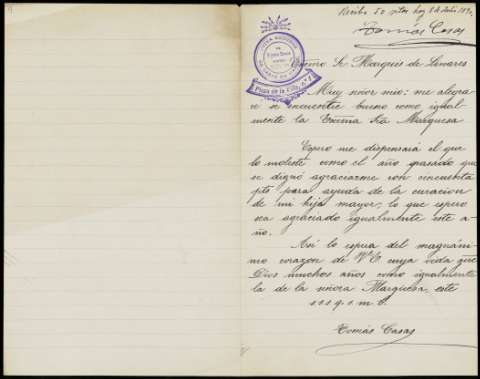 Recibo 50 ptas hoy
Tomás Casas
Plaza de la Villa, nº 1
Excmo Sr. Marqués de Linares
Muy señor mio: me alegra
re se encuentre bueno como igual-
mente la Excma Sra Marquesa
Espero me dispensará el que
le moleste como el año pasado que
se dignó agraciarme con cincuenta
pts para ayuda de la curacion
de mi hijo mayor; lo que espero
sea agraciado igualmente este a-
ño.
Asi lo espera del magnáni-
mo corazon de V.E cuya vida gue
Dios muchos años como igualmente
la de la señora Marquesa este
s.s.s q. s. m. b.
Tomás Casas